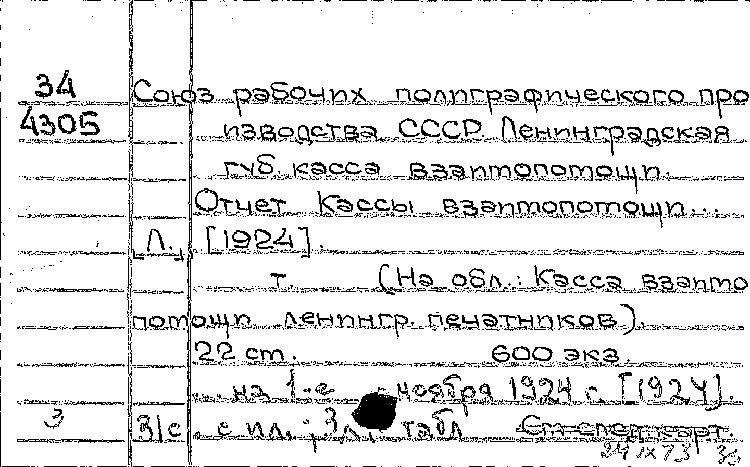 34 Союз рабочих полиграфического про
4305 изводства СССР. Ленинградская
губ. касса взаимопомощи.
Отчет Кассы взаимопомощи...
[Л.], [1924].
т. (На обл.: Касса взаимо
помощи ленингр. печатников).
22 cm. 600 экз.
...на 1-е ноября 1924 г. [1924].
3 3/с. с ил.; 3 л. табл См. след. карт.
24 IX 73